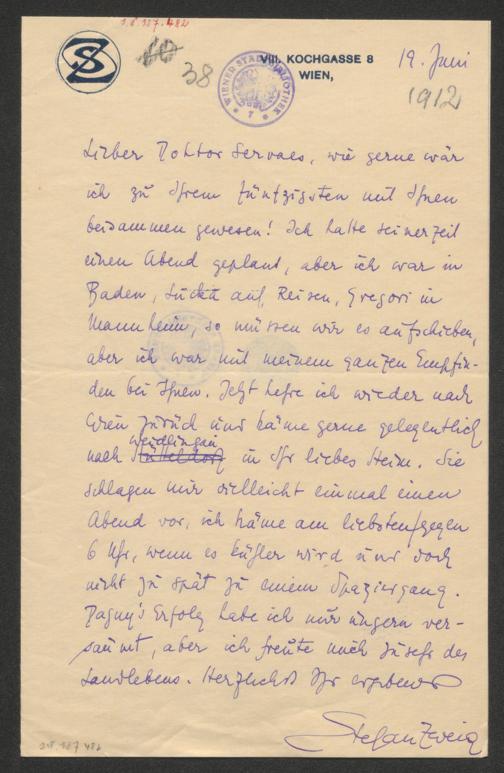 I.N. 187.482
SZ
38
WIENER STADTBIBLIOTHEK
* 7 *
VIII. KOCHGASSE 8
WIEN,
19. Juni
1912
Lieber Doktor Servaes, wie gerne wär
ich zu Ihrem Fünfzigsten mit Ihnen
beisammen gewesen! Ich hatte seinerzeit
einen Abend geplant, aber ich war in
Baden, auf Reisen, Gregori in
Mannheim, so müssen wir es aufschieben,
aber ich war mit meinem ganzen Empfin-
den bei Ihnen. Jetzt kehre ich wieder nach
Wien zurück und käme gerne gelegentlich
Weidlingau
nach Hütteldorf in Ihr liebes Heim. Sie
schlagen mir vielleicht einmal einen
Abend vor, ich käme am liebsten gegen
6 Uhr, wenn es kühler wird und doch
nicht zu spät zu einem Spaziergang.
Erfolg habe ich nur ungern ver-
säumt, aber ich freute mich zu sehr des
Landlebens. Herzlichst Ihr ergebener
Stefan Zweig
I.N. 187 482